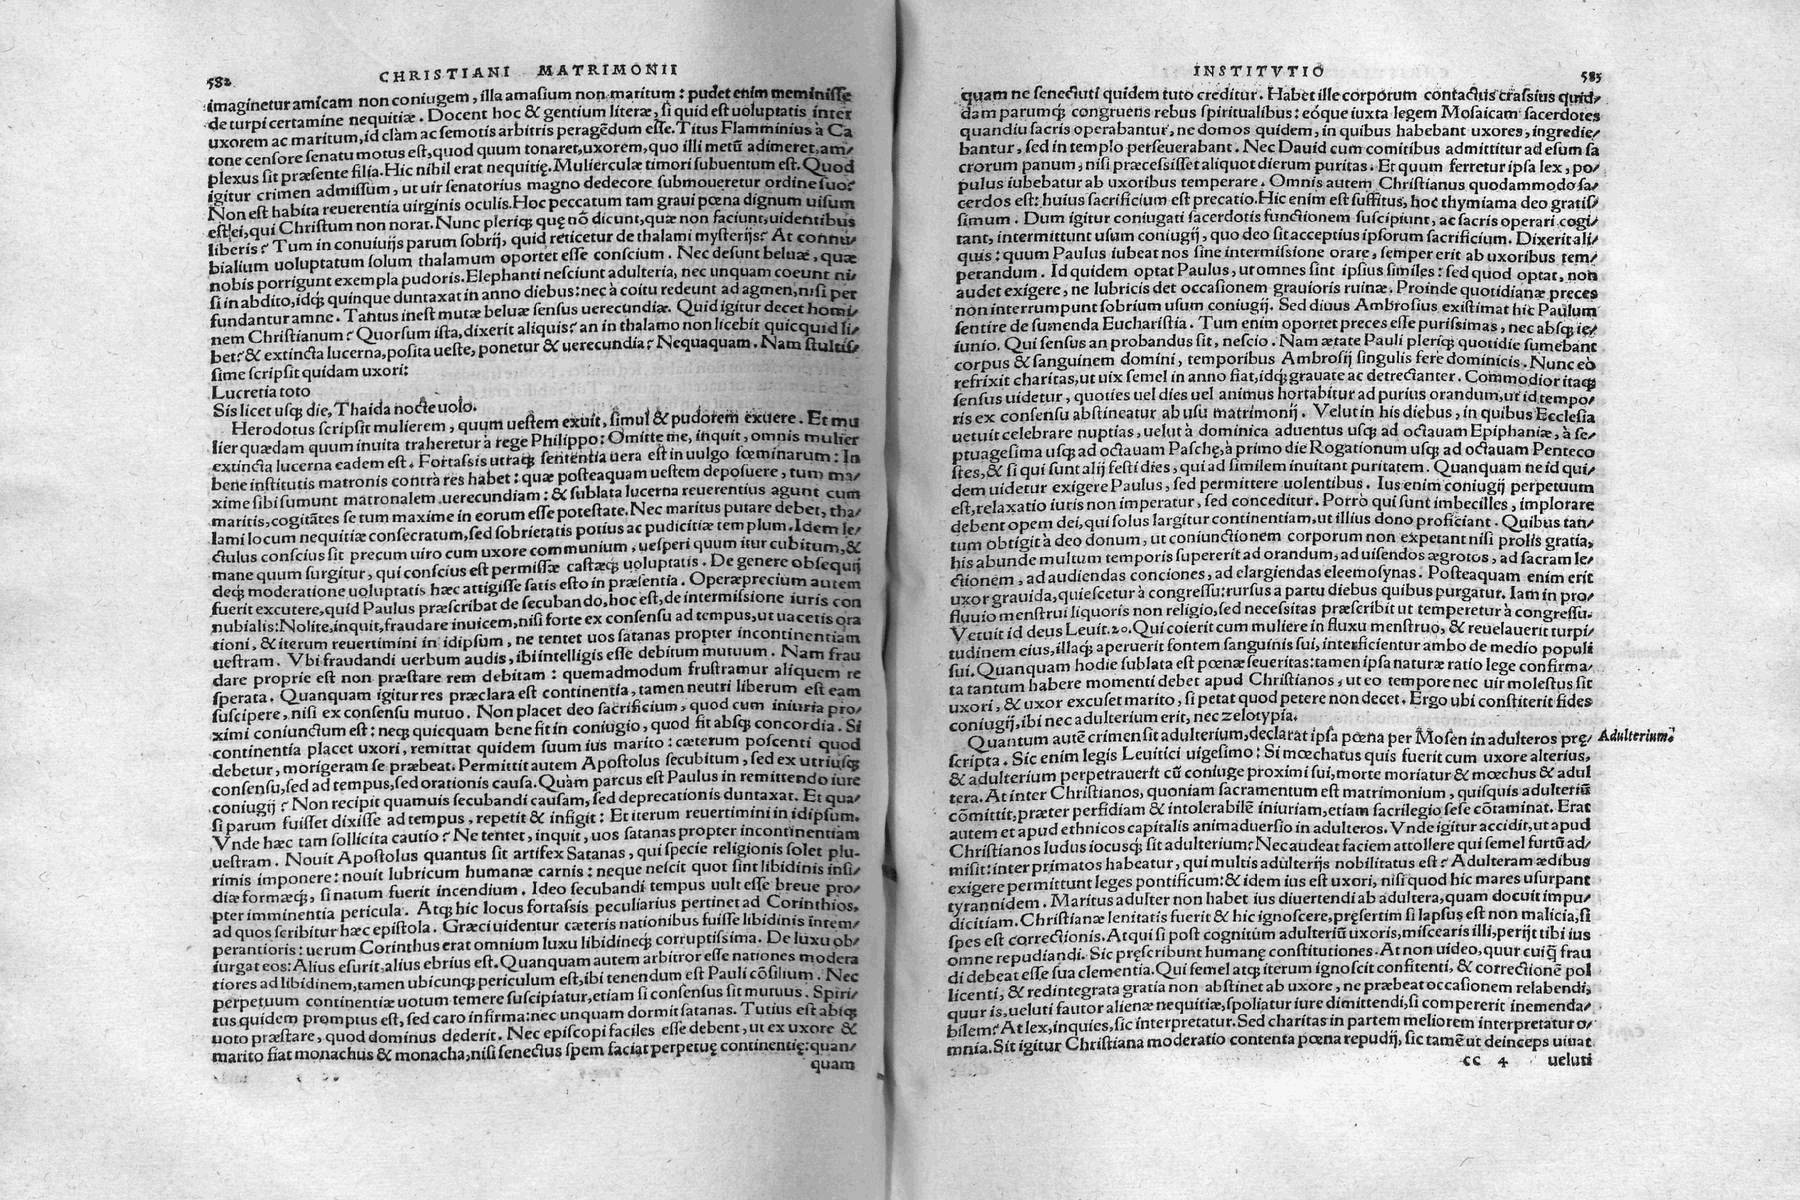 582 CHRISTIANI MATRIMONII
imaginetur amicam non coniugem, illa amasium non maritum: pudet enim meminisse
de turpi certamine nequitiæ. Docent hoc & gentium literæ, si quid est uoluptatis inter
uxorem ac maritum, id clàm ac semotis arbitris peragẽdum esse. Titus Flamminius à Ca
tone censore senatu motus est, quod quum tonaret, uxorem, quo illi metũ adimeret, am/
plexus sit præsente filia. Hic nihil erat nequitię. Mulierculæ timori subuentum est. Quod
igitur crimen admissum, ut uir senatorius magno dedecore submoueretur ordine suo?
Non est habita reuerentia uirginis oculis. Hoc peccatum tam graui pœna dignum uisum
est ei, qui Christum non norat. Nunc pleriq; quę nõ dicunt, quæ non faciunt, uidentibus
liberis? Tum in conuiuijs parum sobrij, quid reticetur de thalami mysterijs? At connu/
bialium uoluptatum solum thalamum oportet esse conscium. Nec desunt beluæ, quæ
nobis porrigunt exempla pudoris. Elephanti nesciunt adulteria, nec unquam coeunt ni/
si in abdito, idq; quinque duntaxat in anno diebus: nec à coitu redeunt ad agmen, nisi per
fundantur amne. Tantus inest mutæ beluæ sensus uerecundiæ. Quid igitur decet homi/
nem Christianum? Quorsum ista, dixerit aliquis? an in thalamo non licebit quicquid li/
bet? & extincta lucerna, posita ueste, ponetur & uerecundia? Nequaquam. Nam stultis/
sime scripsit quidam uxori:
Lucretia toto
Sis licet usq; die, Thaida nocte uolo.
Herodotus scripsit mulierem, quum uestem exuit, simul & pudorem exuere. Et mu
lier quædam quum inuita traheretur à rege Philippo: Omitte me, inquit, omnis mulier
extincta lucerna eadem est. Fortassis utraq; sententia uera est in uulgo fœminarum: In
bene institutis matronis contrà res habet: quæ posteaquam uestem deposuere, tum ma/
xime sibi sumunt matronalem uerecundiam: & sublata lucerna reuerentius agunt cum
maritis, cogitãtes se tum maxime in eorum esse potestate. Nec maritus putare debet, tha/
lami locum nequitiæ consecratum, sed sobrietatis potius ac pudicitiæ templum. Idem le/
ctulus conscius sit precum uiro cum uxore communium, uesperi quum itur cubitum, &
mane quum surgitur, qui conscius est permissæ castæq; uoluptatis. De genere obsequij
deq; moderatione uoluptatis hæc attigisse satis esto in præsentia. Operæprecium autem
fuerit excutere, quid Paulus præscribat de secubando, hoc est, de intermissione iuris con
nubialis: Nolite, inquit, fraudare inuicem, nisi forte ex consensu ad tempus, ut uacetis ora
tioni, & iterum reuertimini in idipsum, ne tentet uos satanas propter incontinentiam
uestram. Vbi fraudandi uerbum audis, ibi intelligis esse debitum mutuum. Nam frau
dare proprie est non præstare rem debitam: quemadmodum frustramur aliquem re
sperata. Quanquam igitur res præclara est continentia, tamen neutri liberum est eam
suscipere, nisi ex consensu mutuo. Non placet deo sacrificium, quod cum iniuria pro/
ximi coniunctum est: neq; quicquam bene fit in coniugio, quod fit absq; concordia. Si
continentia placet uxori, remittat quidem suum ius marito: cæterum poscenti quod
debetur, morigeram se præbeat. Permittit autem Apostolus secubitum, sed ex utriusq;
consensu, sed ad tempus, sed orationis causa. Quàm parcus est Paulus in remittendo iure
coniugij? Non recipit quamuis secubandi causam, sed deprecationis duntaxat. Et qua/
si parum fuisset dixisse ad tempus, repetit & infigit: Et iterum reuertimini in idipsum.
Vnde hæc tam sollicita cautio? Ne tentet, inquit, uos satanas propter incontinentiam
uestram. Nouit Apostolus quantus sit artifex Satanas, qui specie religionis solet plu-
rimis imponere: nouit lubricum humanæ carnis: neque nescit quot sint libidinis insi/
diæ formæq;, si natum fuerit incendium. Ideo secubandi tempus uult esse breue pro/
pter imminentia pericula. Atq; hic locus fortassis peculiarius pertinet ad Corinthios,
ad quos scribitur hæc epistola. Græci uidentur cæteris nationibus fuisse libidinis intem/
perantioris: uerum Corinthus erat omnium luxu libidineq; corruptissima. De luxu ob/
iurgat eos: Alius esurit, alius ebrius est. Quanquam autem arbitror esse nationes modera
tiores ad libidinem, tamen ubicunq; periculum est, ibi tenendum est Pauli cõsilium. Nec
perpetuum continentiæ uotum temere suscipiatur, etiam si consensus sit mutuus. Spiri/
tus quidem promptus est, sed caro infirma: nec unquam dormit satanas. Tutius est absq;
uoto præstare, quod dominus dederit. Nec episcopi faciles esse debent, ut ex uxore &
marito fiat monachus & monacha, nisi senectus spem faciat perpetuę continentię: quan/
quam
INSTITVTIO 583
quam ne senectuti quidem tuto creditur. Habet ille corporum contactus crassius quid/
dam parumq; congruens rebus spiritualibus: eóque iuxta legem Mosaicam sacerdotes
quandiu sacris operabantur, ne domos quidem, in quibus habebant uxores, ingredie/
bantur, sed in templo perseuerabant. Nec Dauid cum comitibus admittitur ad esum sa
crorum panum, nisi præcessisset aliquot dierum puritas. Et quum ferretur ipsa lex, po/
pulus iubebatur ab uxoribus temperare. Omnis autem Christianus quodammodo sa/
cerdos est: huius sacrificium est precatio. Hic enim est suffitus, hoc thymiama deo gratis/
simum. Dum igitur coniugati sacerdotis functionem suscipiunt, ac sacris operari cogi/
tant, intermittunt usum coniugij, quo deo sit acceptius ipsorum sacrificium. Dixerit ali/
quis: quum Paulus iubeat nos sine intermissione orare, semper erit ab uxoribus tem/
perandum. Id quidem optat Paulus, ut omnes sint ipsius similes: sed quod optat, non
audet exigere, ne lubricis det occasionem grauioris ruinæ. Proinde quotidianæ preces
non interrumpunt sobrium usum coniugij. Sed diuus Ambrosius existimat hic Paulum
sentire de sumenda Eucharistia. Tum enim oportet preces esse purissimas, nec absq; ie/
iunio. Qui sensus an probandus sit, nescio. Nam ætate Pauli pleriq; quotidie sumebant
corpus & sanguinem domini, temporibus Ambrosij singulis fere dominicis. Nunc eò
refrixit charitas, ut uix semel in anno fiat, idq; grauate ac detrectanter. Commodior itaq;
sensus uidetur, quoties uel dies uel animus hortabitur ad purius orandum, ut id tempo/
ris ex consensu abstineatur ab usu matrimonij. Velut in his diebus, in quibus Ecclesia
uetuit celebrare nuptias, uelut à dominica aduentus usq; ad octauam Epiphaniæ, à se/
ptuagesima usq; ad octauam Paschę, à primo die Rogationum usq; ad octauam Penteco
stes, & si qui sunt alij festi dies, qui ad similem inuitant puritatem. Quanquam ne id qui/
dem uidetur exigere Paulus, sed permittere uolentibus. Ius enim coniugij perpetuum
est, relaxatio iuris non imperatur, sed conceditur. Porrò qui sunt imbecilles, implorare
debent opem dei, qui solus largitur continentiam, ut illius dono proficiant. Quibus tan/
tum obtigit à deo donum, ut coniunctionem corporum non expetant nisi prolis gratia,
his abunde multum temporis supererit ad orandum, ad uisendos ægrotos, ad sacram le/
ctionem, ad audiendas conciones, ad elargiendas eleemosynas. Posteaquam enim erit
uxor grauida, quiescetur à congressu: rursus a partu diebus quibus purgatur. Iam in pro/
fluuio menstrui liquoris non religio, sed necessitas præscribit ut temperetur à congressu.
Vetuit id deus Leuit. 20. Qui coierit cum muliere in fluxu menstruo, & reuelauerit turpi/
tudinem eius, illaq; aperuerit fontem sanguinis sui, interficientur ambo de medio populi
sui. Quanquam hodie sublata est pœnæ seueritas: tamen ipsa naturæ ratio lege confirma/
ta tantum habere momenti debet apud Christianos, ut eo tempore nec uir molestus sit
uxori, & uxor excuset marito, si petat quod petere non decet. Ergo ubi constiterit fides
coniugij, ibi nec adulterium erit, nec zelotypia.
Quantum autẽ crimen sit adulterium, declarat ipsa pœna per Mosen in adulteros prę/ Adulterium.
scripta. Sic enim legis Leuitici uigesimo: Si mœchatus quis fuerit cum uxore alterius,
& adulterium perpetrauerit cũ coniuge proximi sui, morte moriatur & mœchus & adul
tera. At inter Christianos, quoniam sacramentum est matrimonium, quisquis adulteriũ
cõmittit, præter perfidiam & intolerabilẽ iniuriam, etiam sacrilegio sese cõtaminat. Erat
autem et apud ethnicos capitalis animaduersio in adulteros. Vnde igitur accidit, ut apud
Christianos ludus iocusq; sit adulterium? Nec audeat faciem attollere qui semel furtũ ad/
misit: inter primatos habeatur, qui multis adulterijs nobilitatus est? Adulteram ædibus
exigere permittunt leges pontificum: & idem ius est uxori, nisi quod hic mares usurpant
tyrannidem. Maritus adulter non habet ius diuertendi ab adultera, quam docuit impu/
dicitiam. Christianæ lenitatis fuerit & hic ignoscere, pręsertim si lapsus est non malicia, si
spes est correctionis. Atqui si post cognitum adulteriũ uxoris, miscearis illi, perijt tibi ius
omne repudiandi. Sic pręscribunt humanę constitutiones. At non uideo, quur cuiq̃ frau
di debeat esse sua clementia. Qui semel atq; iterum ignoscit confitenti, & correctionẽ pol
licenti, & redintegrata gratia non abstinet ab uxore, ne præbeat occasionem relabendi,
quur is, ueluti fautor alienæ nequitiæ, spoliatur iure dimittendi, si compererit inemenda/
bilem? At lex, inquies, sic interpretatur. Sed charitas in partem meliorem interpretatur o/
mnia. Sit igitur Christiana moderatio contenta pœna repudij, sic tamẽ ut deinceps uiuat
cc 4 ueluti